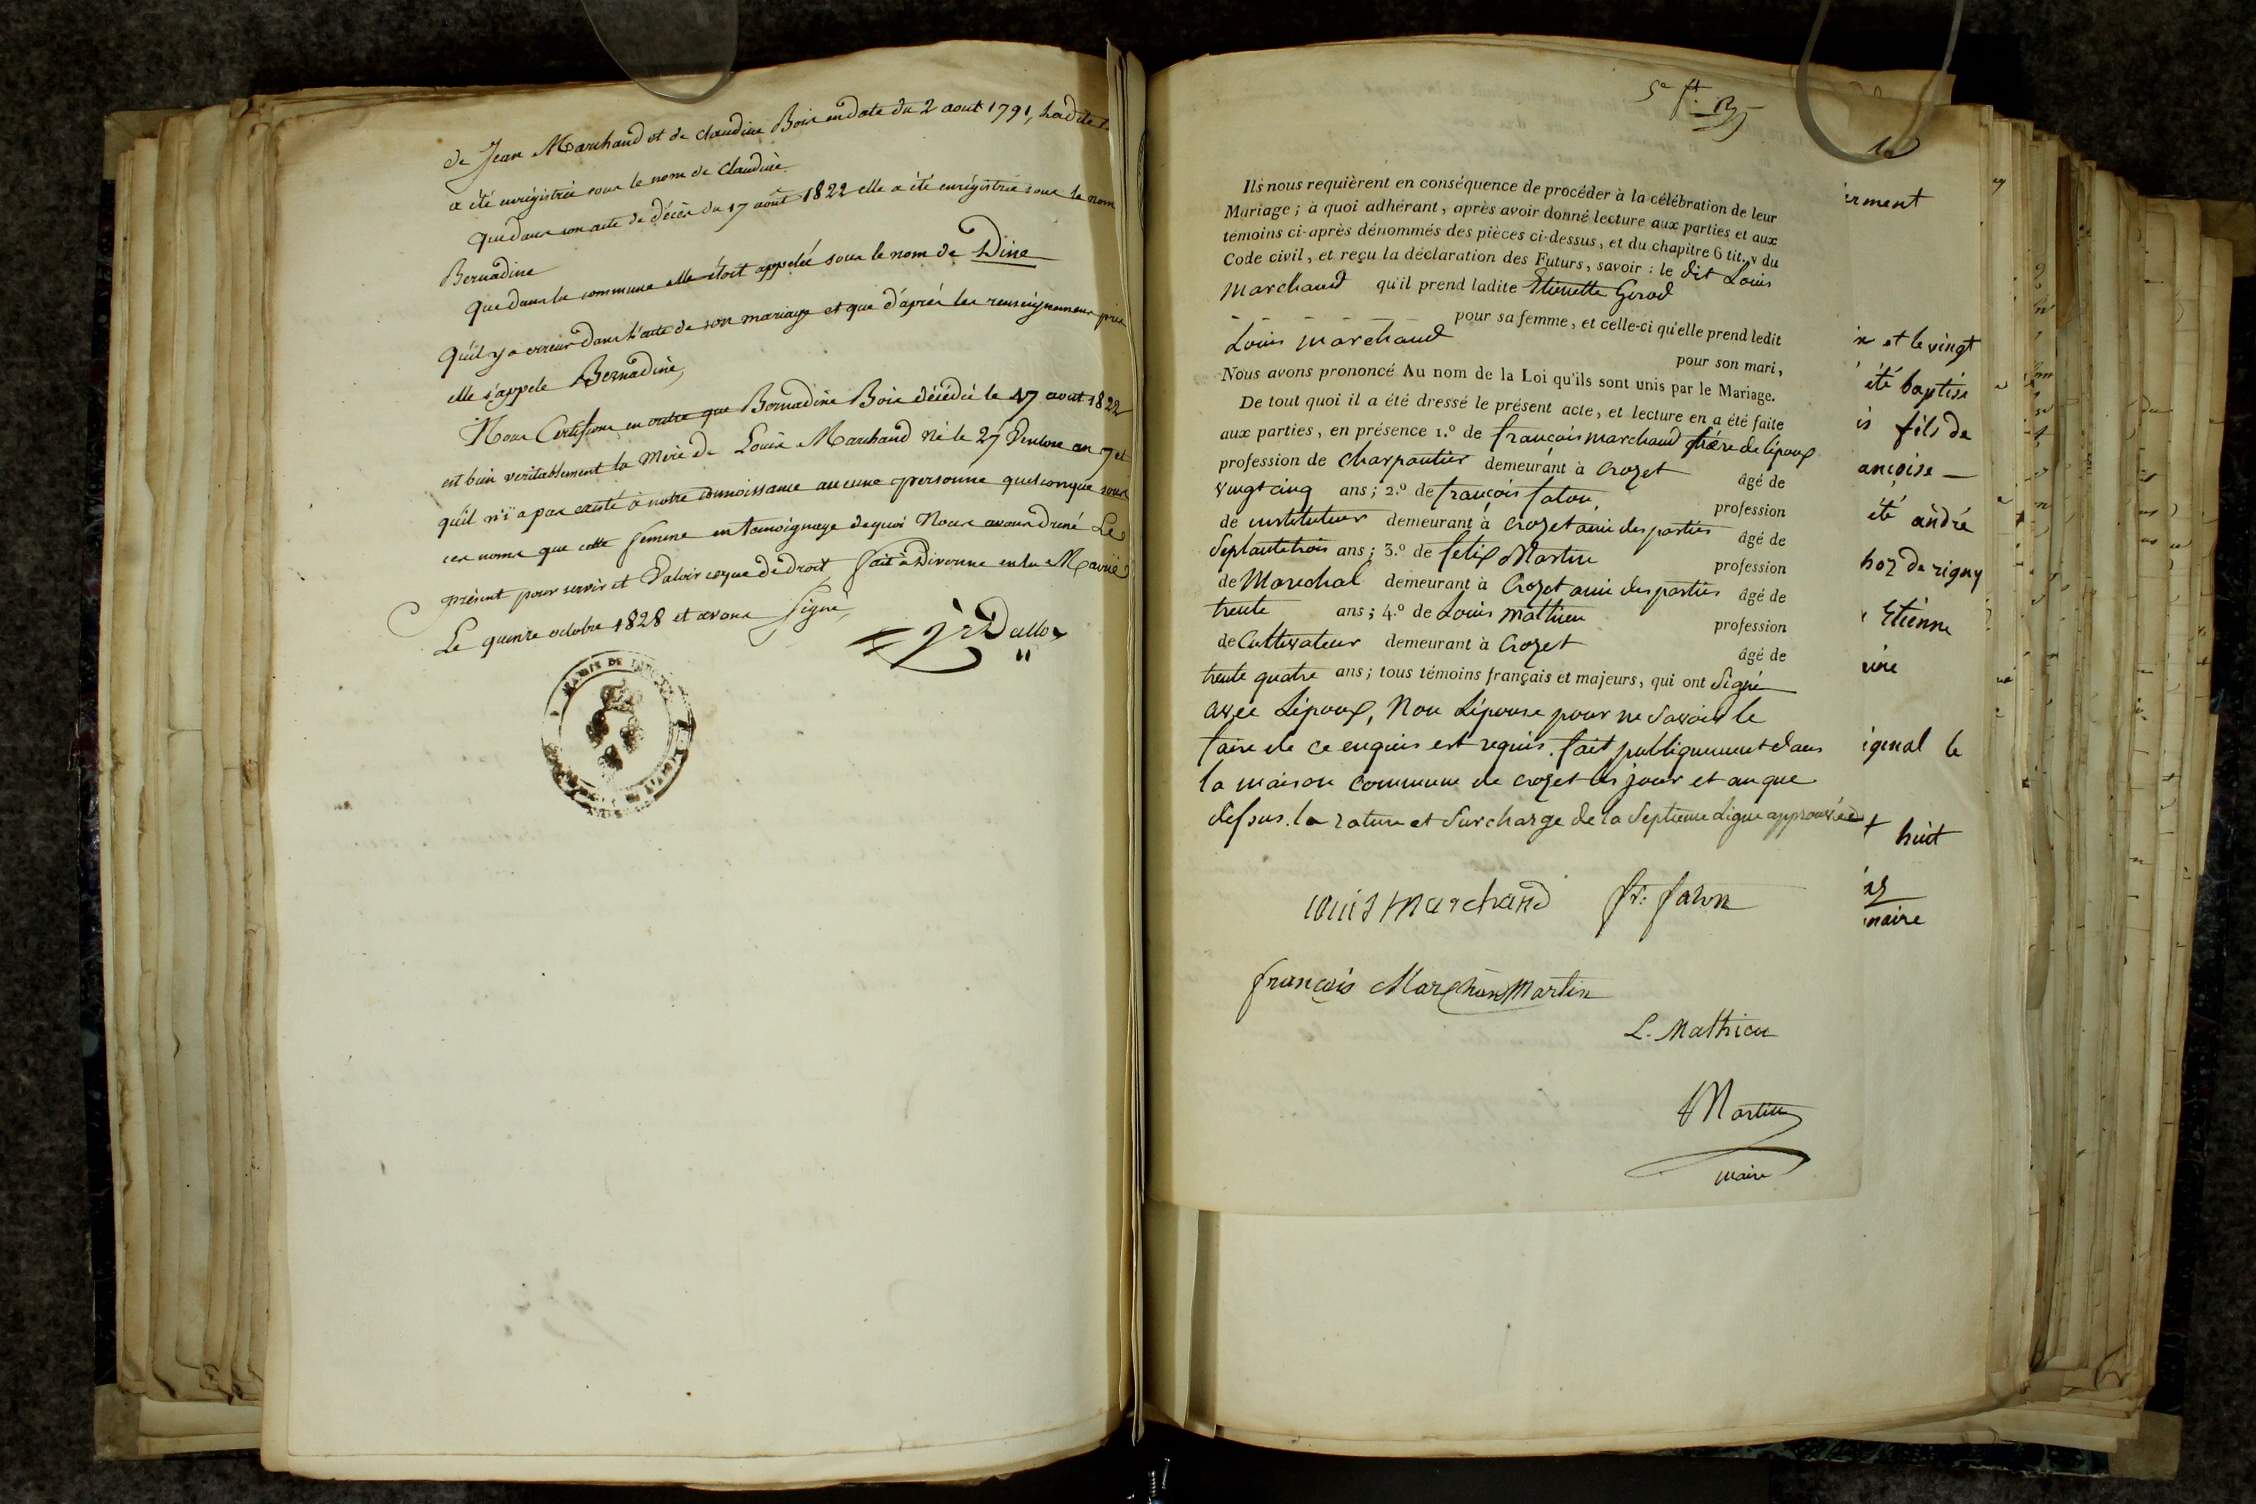 de Jean Marchand et de Claudine Bois en date du 2 aout 1791, Ladite
a été enrégistrée sous le nom de Claudine.
Que dans son acte de décès du 17 août 1822 elle a été enrégistrée sous le nom
Bernadine
Que dans la commune elle étoit appelée sous le nom de Dine
Qu'il y a erreur dans l'acte de son mariage et que d'après les renseignemens pris
elle s'appele Bernadine,
Nous Certifions en outre que Bernadine Bois décédée le 17 aout 1822
est bien veritablement la Mère de Louis Marchand né le 27 Ventose an 7 et
qu'il n'i a pas existé à notre connoissance aucune personne quelconque sous
ces noms que cette femme en temoignage de quoi Nous avons donné Le
présent pour servir et Valoir ce que de Droit fait à Divonne en la Mairie
Le quinze octobre 1828 et avons Signé,
MAIRIE DE
5e ft.
Ils nous requièrent en conséquence de procéder à la célébration de leur
Mariage; à quoi adhérant, après avoir donné lecture aux parties et aux
témoins ci-après dénommés des pièces ci-dessus, et du chapitre 6 tit. v du
Code civil, et reçu la déclaration des Futurs, savoir : le dit Louis
Marchand qu'il prend ladite Etiennette Girod
pour sa femme, et celle-ci qu'elle prend ledit
Louis marchand pour son mari,
Nous avons prononcé Au nom de la Loi qu'ils sont unis par le Mariage.
De tout quoi il a été dressé le présent acte, et lecture en a été faite
aux parties, en présence 1.º de françois marchand frère de l'époux
profession de charpentier demeurant à Crozet âgé de
vingt cinq ans; 2.º de françois falon profession
de instituteur demeurant à Crozet ami des parties âgé de
Septante trois ans; 3.º de felix Martin profession
de Marechal demeurant à Crozet ami des parties âgé de
trente ans; 4.º de Louis Mathieu profession
de Cultivateur demeurant à Crozet âgé de
trente quatre ans; tous témoins français et majeurs, qui ont Signé
avec L'époux, Non L'épouse pour ne Savoir le
faire de ce enquis est requis. fait publiquement dans
la maison commune de crozet les jour et an que
dessus. la rature et Surcharge de la Septieme ligne approuvée
louis marchand fr: falon
françois Marchand Martin
L. Mathieu
Martin
maire
erment
et le vingt
été baptisé
is fils de
ançoise
été andré
hoz de rigny
Etienne
iginal le
huit
maire